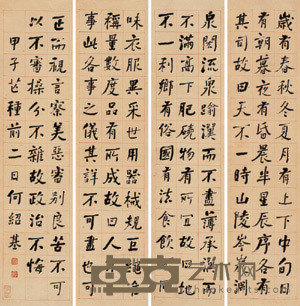 歲有春秋冬夏月有上下中旬日
有朝暮夜有昏晨半星辰序各有
其司故曰天不一時山陵岑巖淵
泉閎流泉踰瀷而不盡薄承瀷而
不滿高下肥墝物有所宜故曰地
不一利鄉有俗國有法食飲不同
味衣服異采世用器械規矩繩準
稱量數度品有所成故曰人不一
事此各事之儀其詳不可盡也可
正而視言察美惡審別良苦不可
以不審操分不雜故政治不悔
甲子芒種前二日何紹基